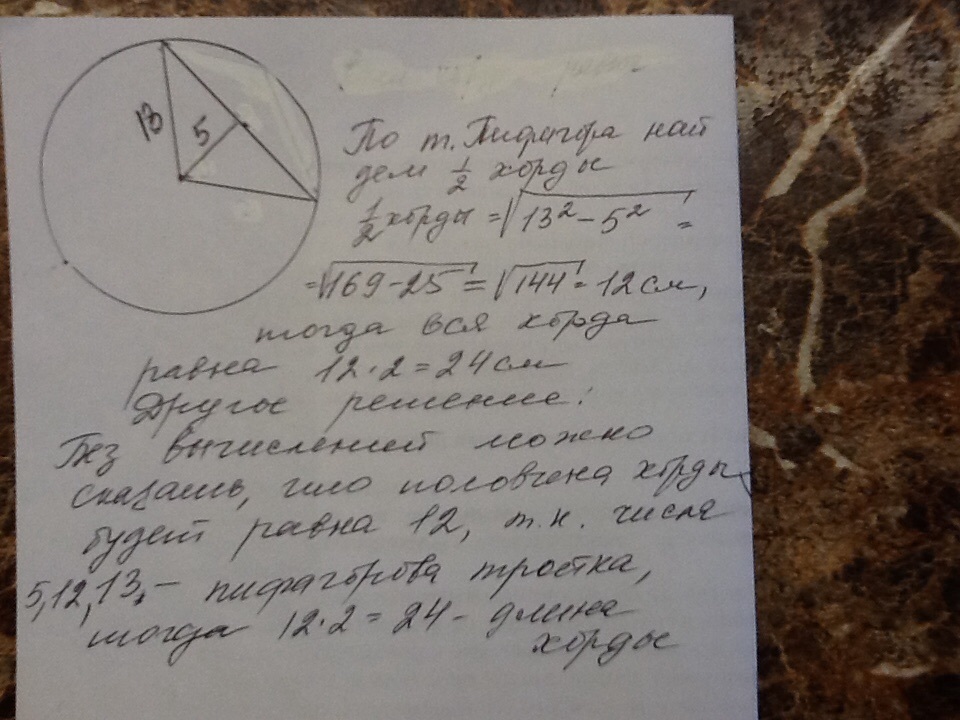 13
5
По т. Пифагора най
дем 1/2 хорды
1/2 хорды = √13² - 5² =
= √169 - 25 = √144 = 12 см,
тогда вся хорда
равна 12·2 = 24 см
Другое решение:
Без вычислений можно
сказать, что половина хорды
будет равна 12, т.к. числа
5, 12, 13, - пифагорова тройка,
тогда 12·2 = 24 - длина
хорды